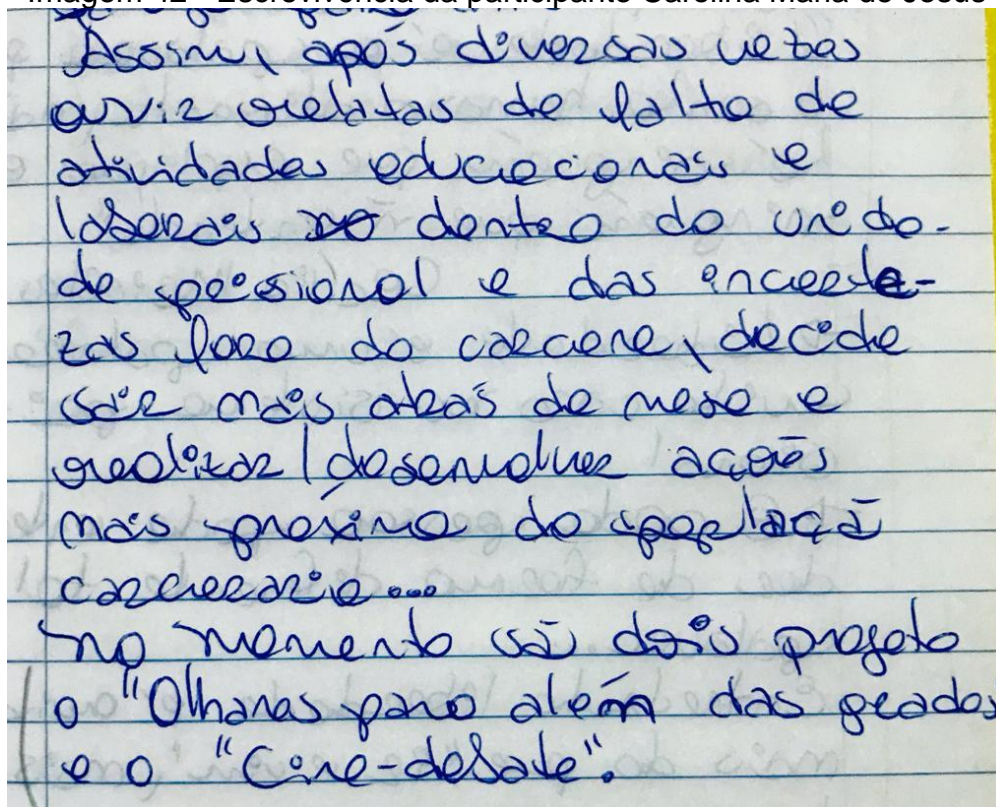 Imagem 42 - Escrevivência da participante Carolina Maria de Jesus
Assim, após diversas vezes
ouvir relatos de falta de
atividades educacionais e
laborais dentro da unida-
de prisional e das incerte-
zas fora do carcere, decide
sair mais atras da mesa e
realizar/desenvolver ações
mais proximo da populaçã
carceraria...
no momento sã dois projeto
o "Olhares para além das grades
e o "Cine-debate".